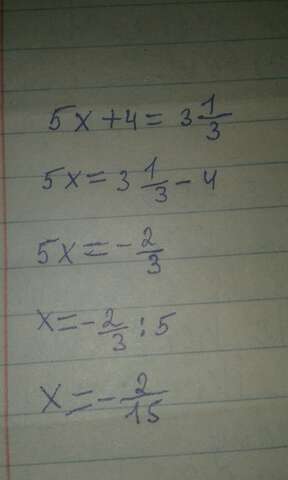 5x+4=3 1/3
5x=3 1/3-4
5x=-2/3
x=-2/3:5
x=-2/15